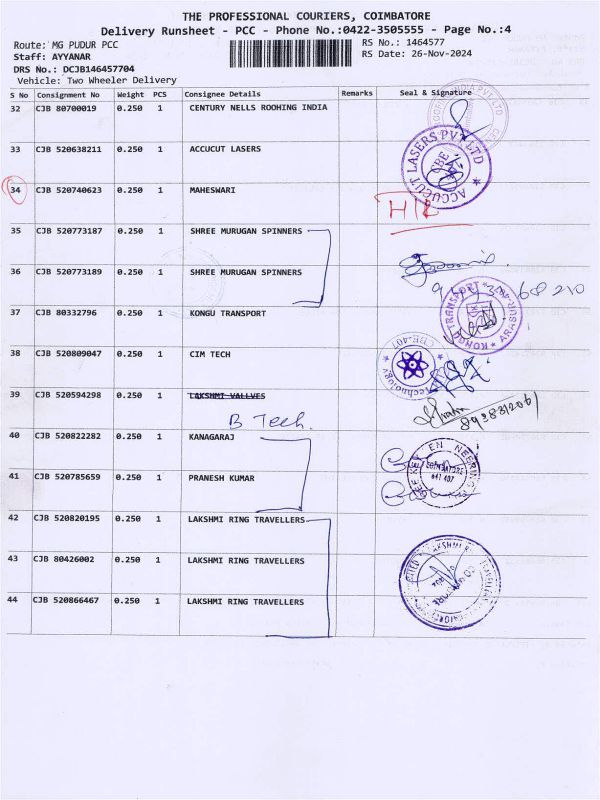 THE PROFESSIONAL COURIERS, COIMBATORE
Delivery Runsheet - PCC - Phone No.:0422-3505555 - Page No.:4
Route: MG PUDUR PCC
RS No.: 1464577
Staff: AYYANAR
RS Date: 26-Nov-2024
DRS No.: DCJB146457704
Vehicle: Two Wheeler Delivery
S No Consignment No Weight PCS Consignee Details Remarks Seal & Signature
32 CJB 80700019 0.250 1 CENTURY NELLS ROOHING INDIA
33 CJB 520638211 0.250 1 ACCUCUT LASERS
ACCUCUT LASERS PVT LTD
CBE
34 CJB 520740623 0.250 1 MAHESWARI
35 CJB 520773187 0.250 1 SHREE MURUGAN SPINNERS
36 CJB 520773189 0.250 1 SHREE MURUGAN SPINNERS
37 CJB 80332796 0.250 1 KONGU TRANSPORT
KONGU TRANSPORT
38 CJB 520809047 0.250 1 CIM TECH
CBE-407
Technology
39 CJB 520594298 0.250 1 LAKSHMI VALLVES
B Tech.
8938312061
40 CJB 520822282 0.250 1 KANAGARAJ
41 CJB 520785659 0.250 1 PRANESH KUMAR
641 407
42 CJB 520820195 0.250 1 LAKSHMI RING TRAVELLERS
43 CJB 80426002 0.250 1 LAKSHMI RING TRAVELLERS
44 CJB 520866467 0.250 1 LAKSHMI RING TRAVELLERS